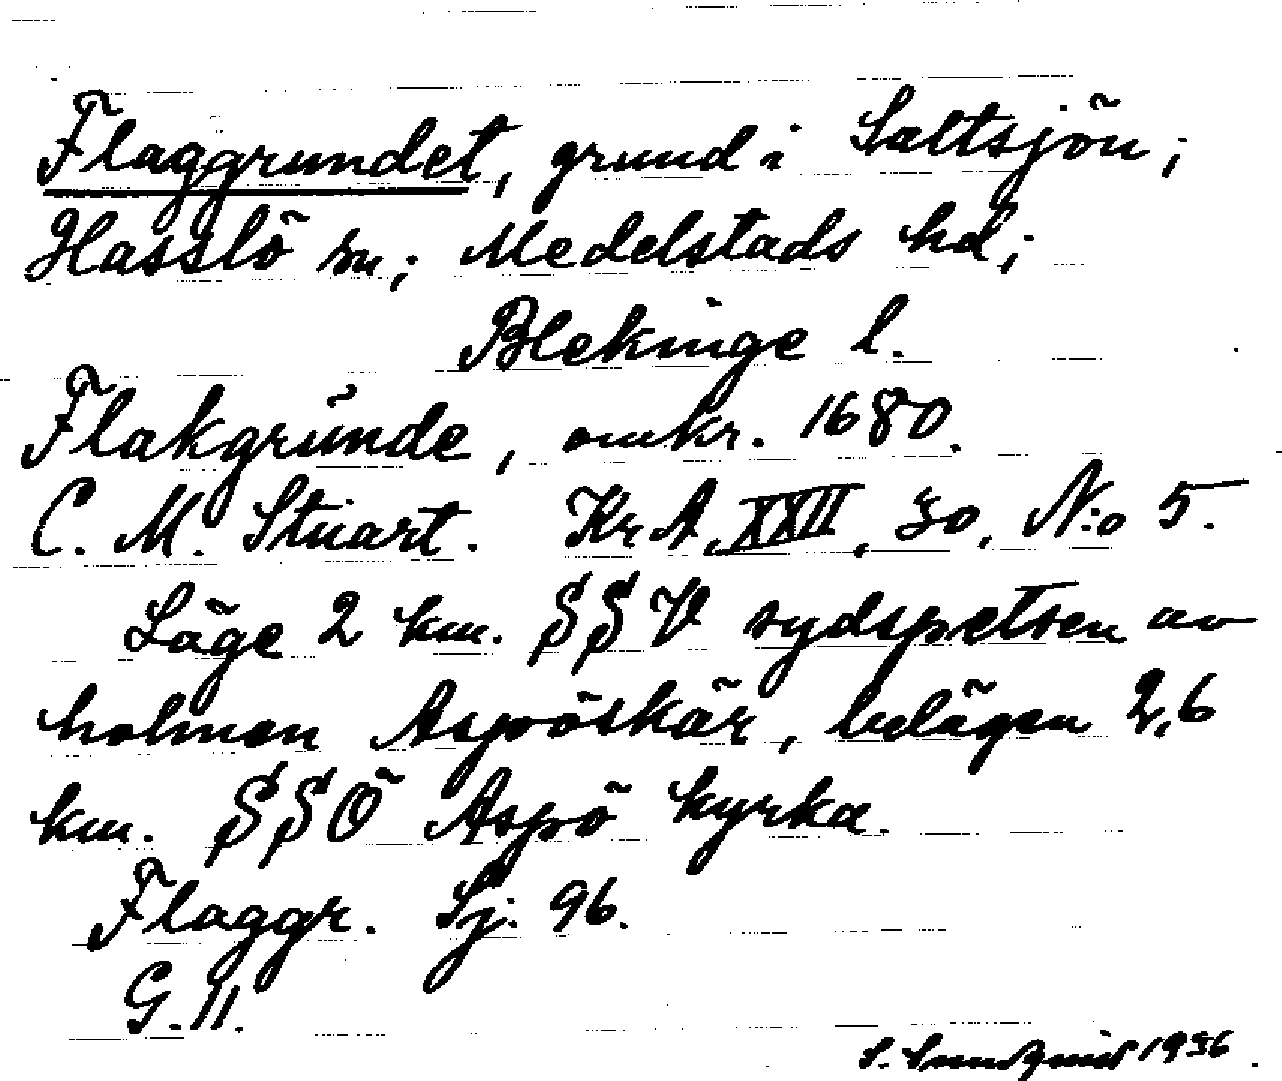 Flaggrundet, grund i Saltsjön;
Hasslö sn; Medelstads hd;
Blekinge l.
Flakgrunde, omkr. 1680.
C. M. Stuart. Kr A, XXII, 30, N:o 5.
Läge 2 km. SSV sydspetsen av
holmen Aspöskär, belägen 2,6
km. SSÖ Aspö kyrka.
Flaggr. Sj. 96.
G. 11.
S. Sundqvist 1936.